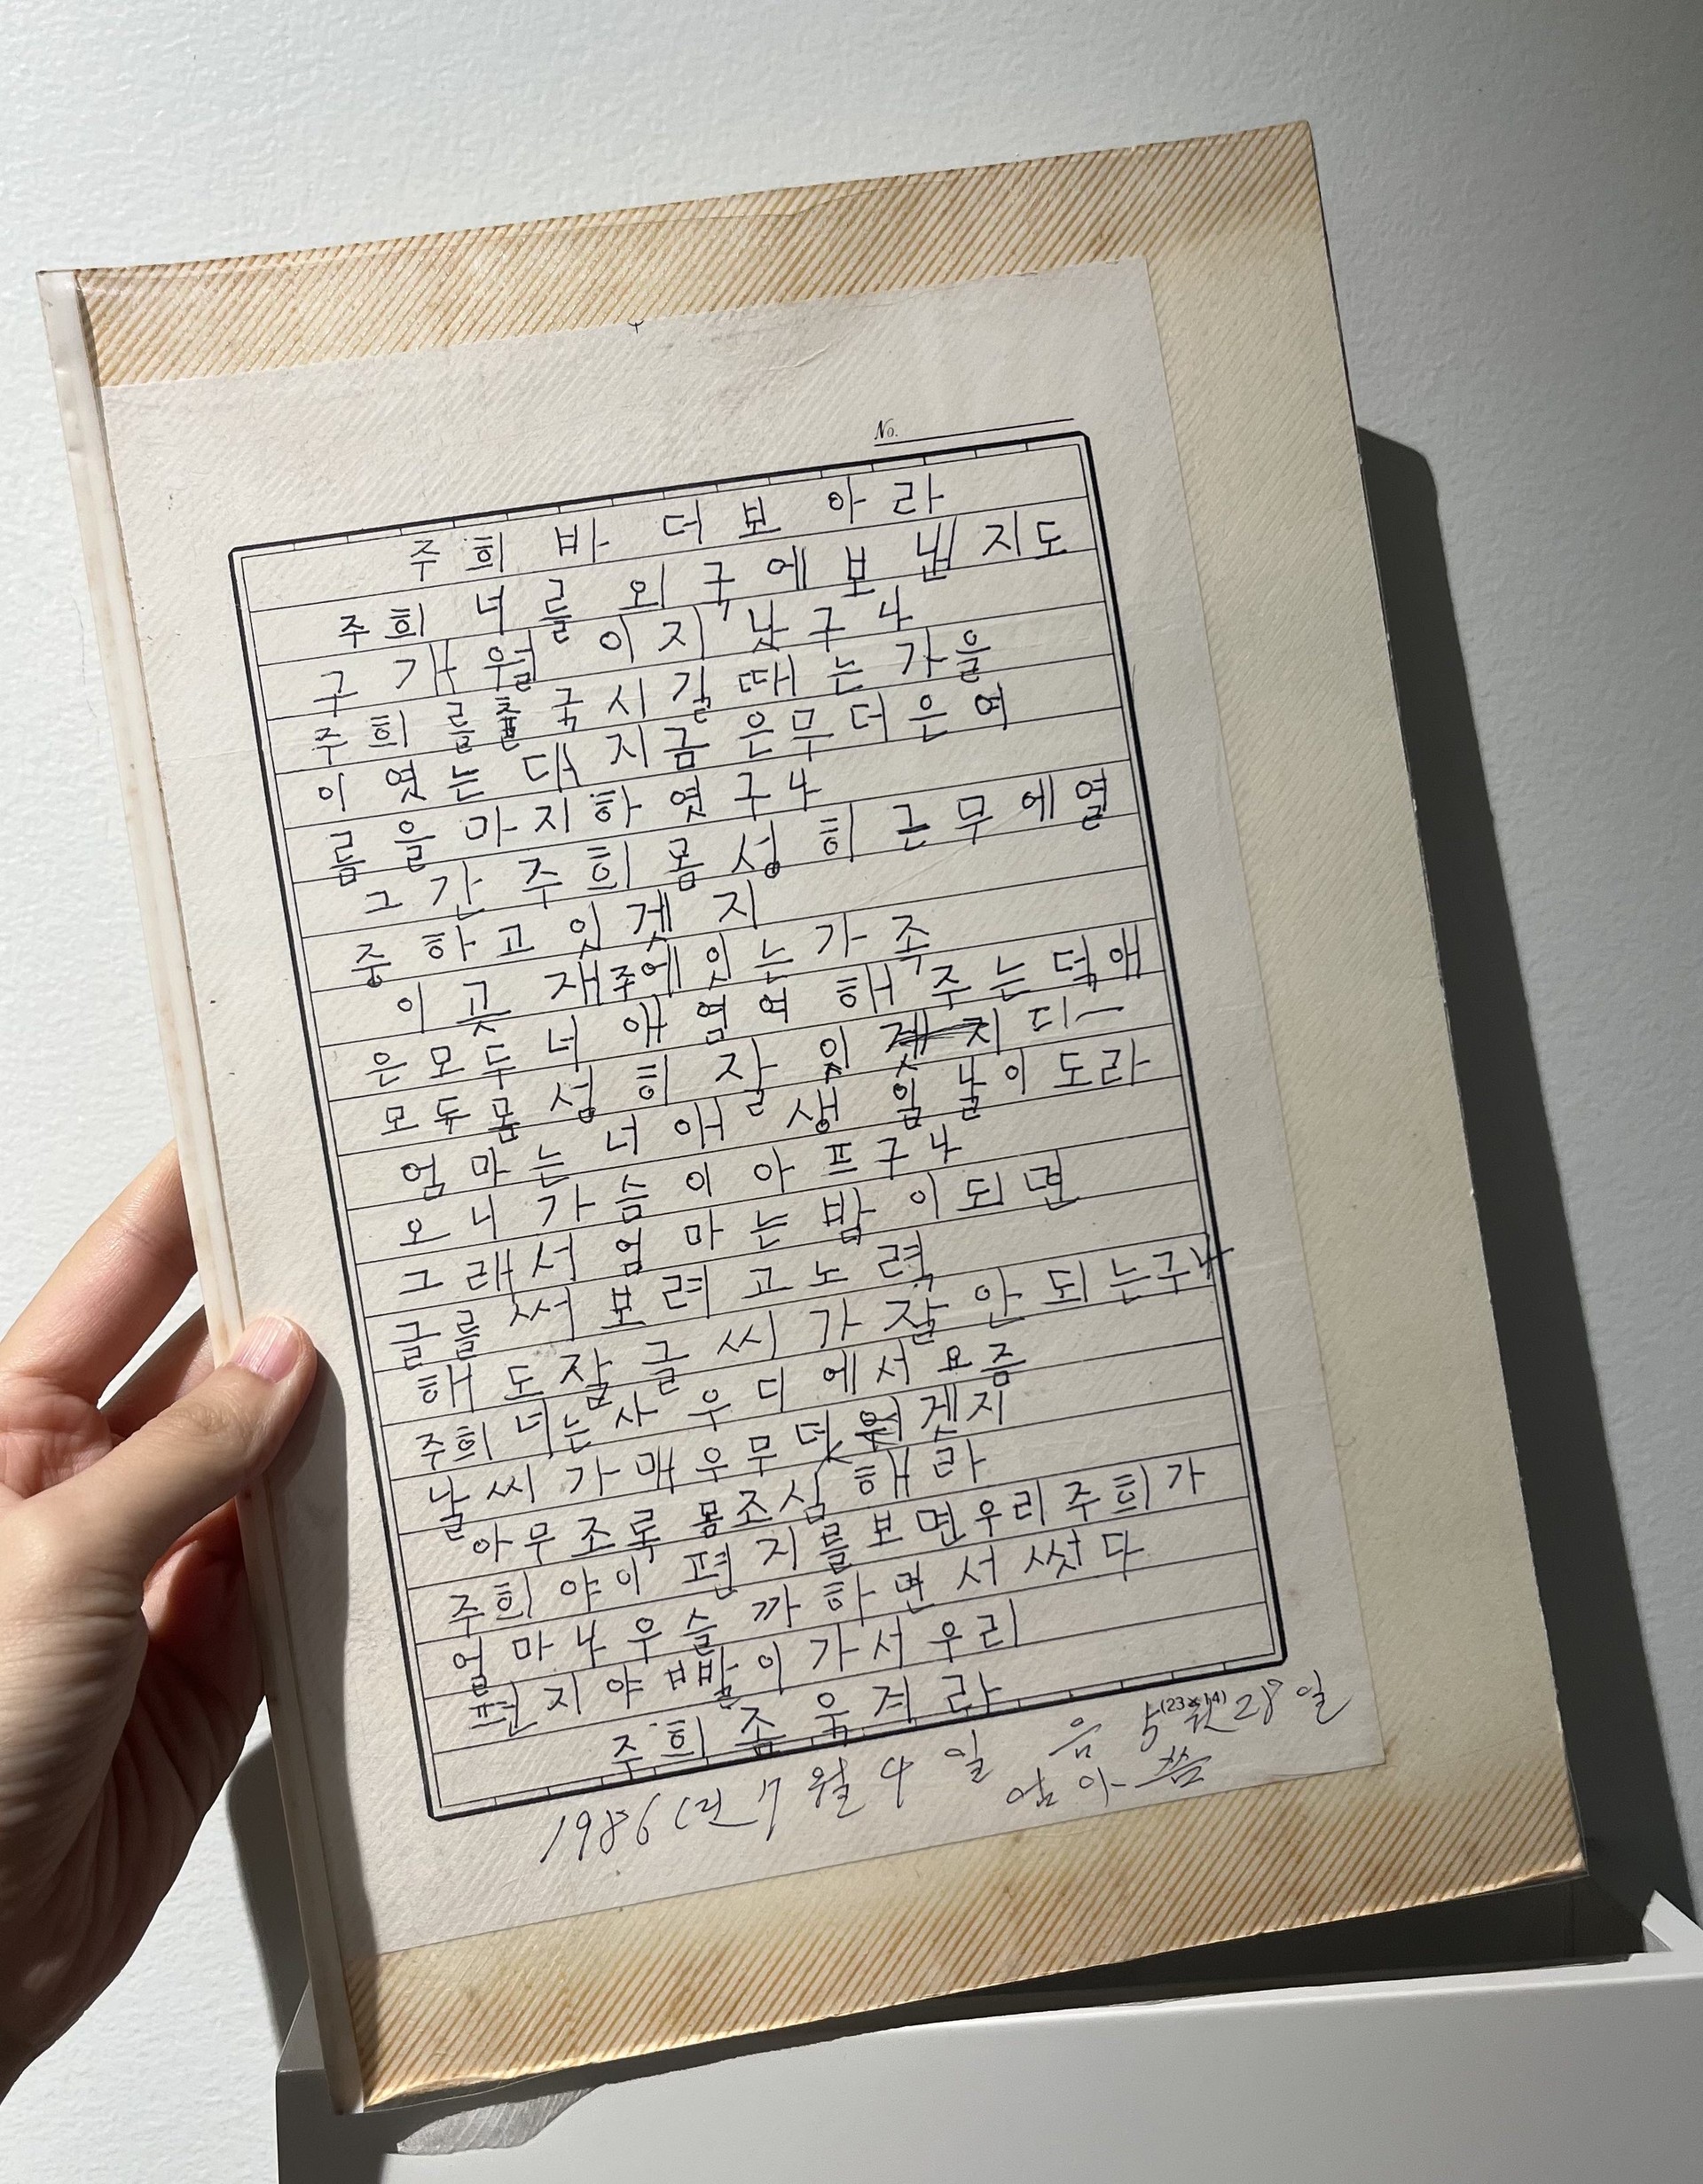 No.
주희 바더보아라
주희 너를 외국에보낸지도
구개월이지낫구나
주희를출국시길때는가을
이엿는대 지금은무더은여
름을마지하엿구나
그간주희몸성히근무에열
중하고잇겟지
이곳재주에잇는가족
은모두너애염여해주는덕애
모두몸성히잘잇디
엄마는너애생일날이도라
오니가슴이아프구나
그래서엄마는밤이되면
글를써보려고노력
해도잘글씨가잘안되는구나
주희너는사우디에서요즘
날씨가매우무덧겟지
아무조록몸조심해라
주희야이편지를보면우리주희가
얼마나우슬까하면서썻다
편지야빨이가서우리
주희좀웃겨라
1986년 7월 4일 음 5월28일
(23×14)
엄마씀